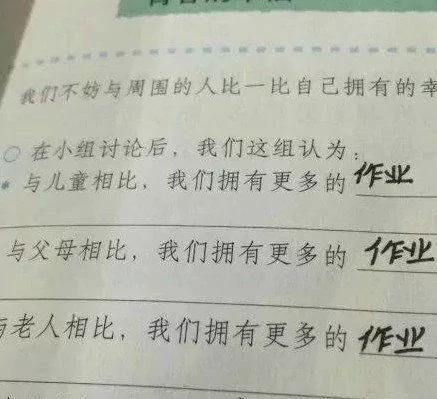 我们不妨与周围的人比一比自己拥有的幸
○ 在小组讨论后，我们这组认为：
* 与儿童相比，我们拥有更多的 作业
与父母相比，我们拥有更多的 作业
与老人相比，我们拥有更多的 作业